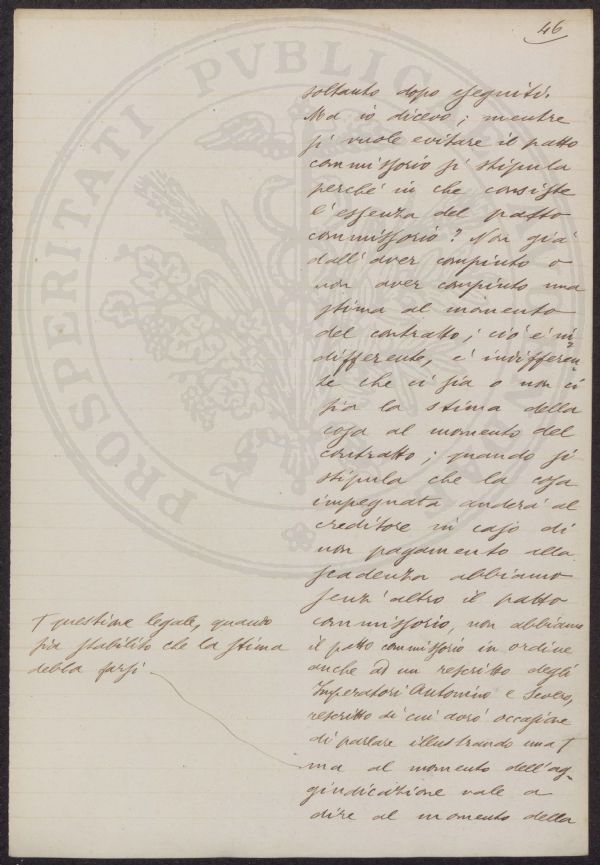 46
soltanto dopo eseguiti.
Ma io dicevo; mentre
si vuole evitare il patto
commissorio si stipula
perché in che consiste
l'essenza del patto
commissorio? Non già
dall'aver compiuto o
non aver compiuto una
stima al momento
del contratto; ciò è in=
differente, è indifferen=
te che ci sia o non ci
sia la stima della
cosa al momento del
contratto; quando si
stipula che la cosa
impegnata anderà al
creditore in caso di
non pagamento alla
scadenza abbiamo
senz'altro il patto
commissorio, non abbiamo
il patto commissorio in ordine
anche ad un rescritto degli
Imperatori Antonino e Severo,
rescritto di cui avrò occasione
di parlare illustrando una †
† questione legale, quando
sia stabilito che la stima
debba farsi
ma al momento dell'ag=
giudicazione vale a
dire al momento della
PROSPERITATI PVBLICAE